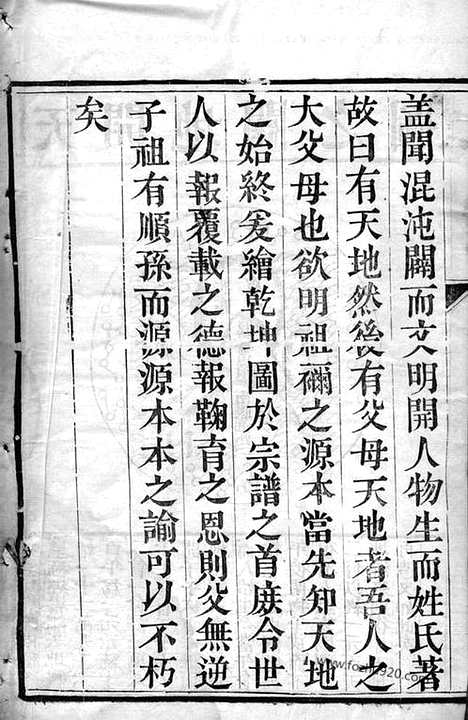 盖聞混沌闢而文明開人物生而姓氏著
故曰有天地然後有父母天地者吾人之
大父母也欲明祖禰之源本當先知天地
之始終爰繪乾坤圖於宗譜之首庻令世
人以報覆載之德報鞠育之恩則父無逆
子祖有順孫而源源本本之諭可以不朽
矣